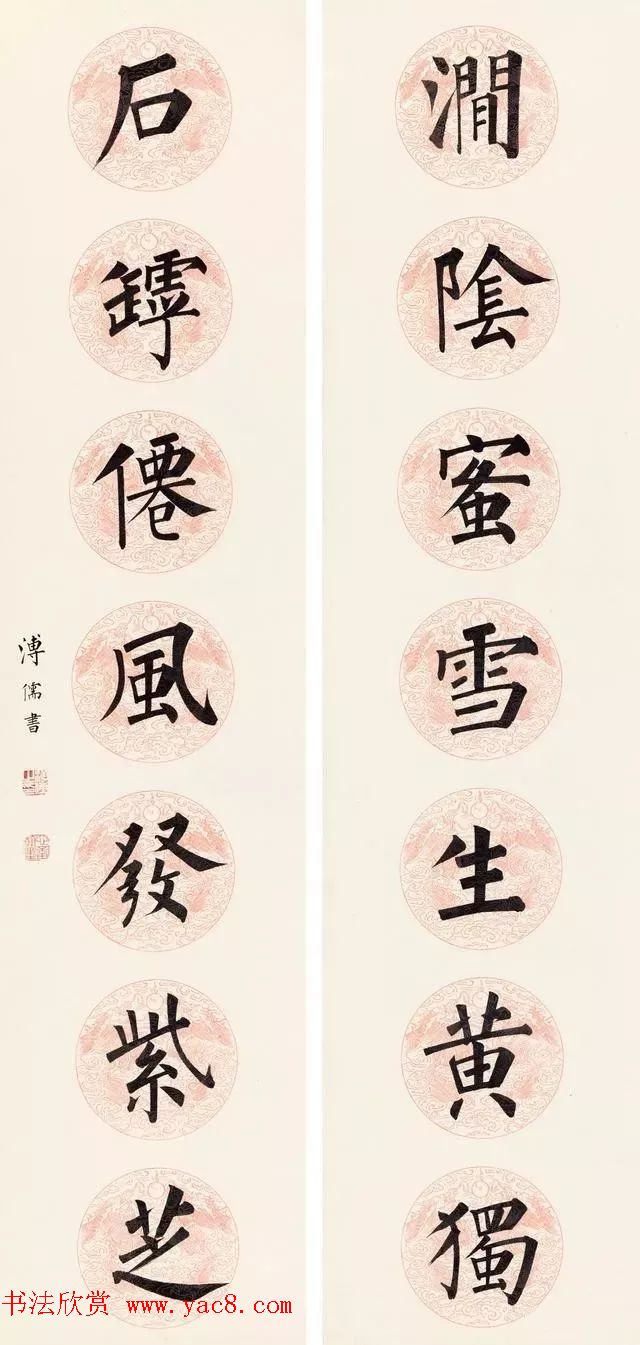 澗陰蜜雪生黄獨
石罅僊風發紫芝
溥儒書
书法欣赏 www.yac8.com